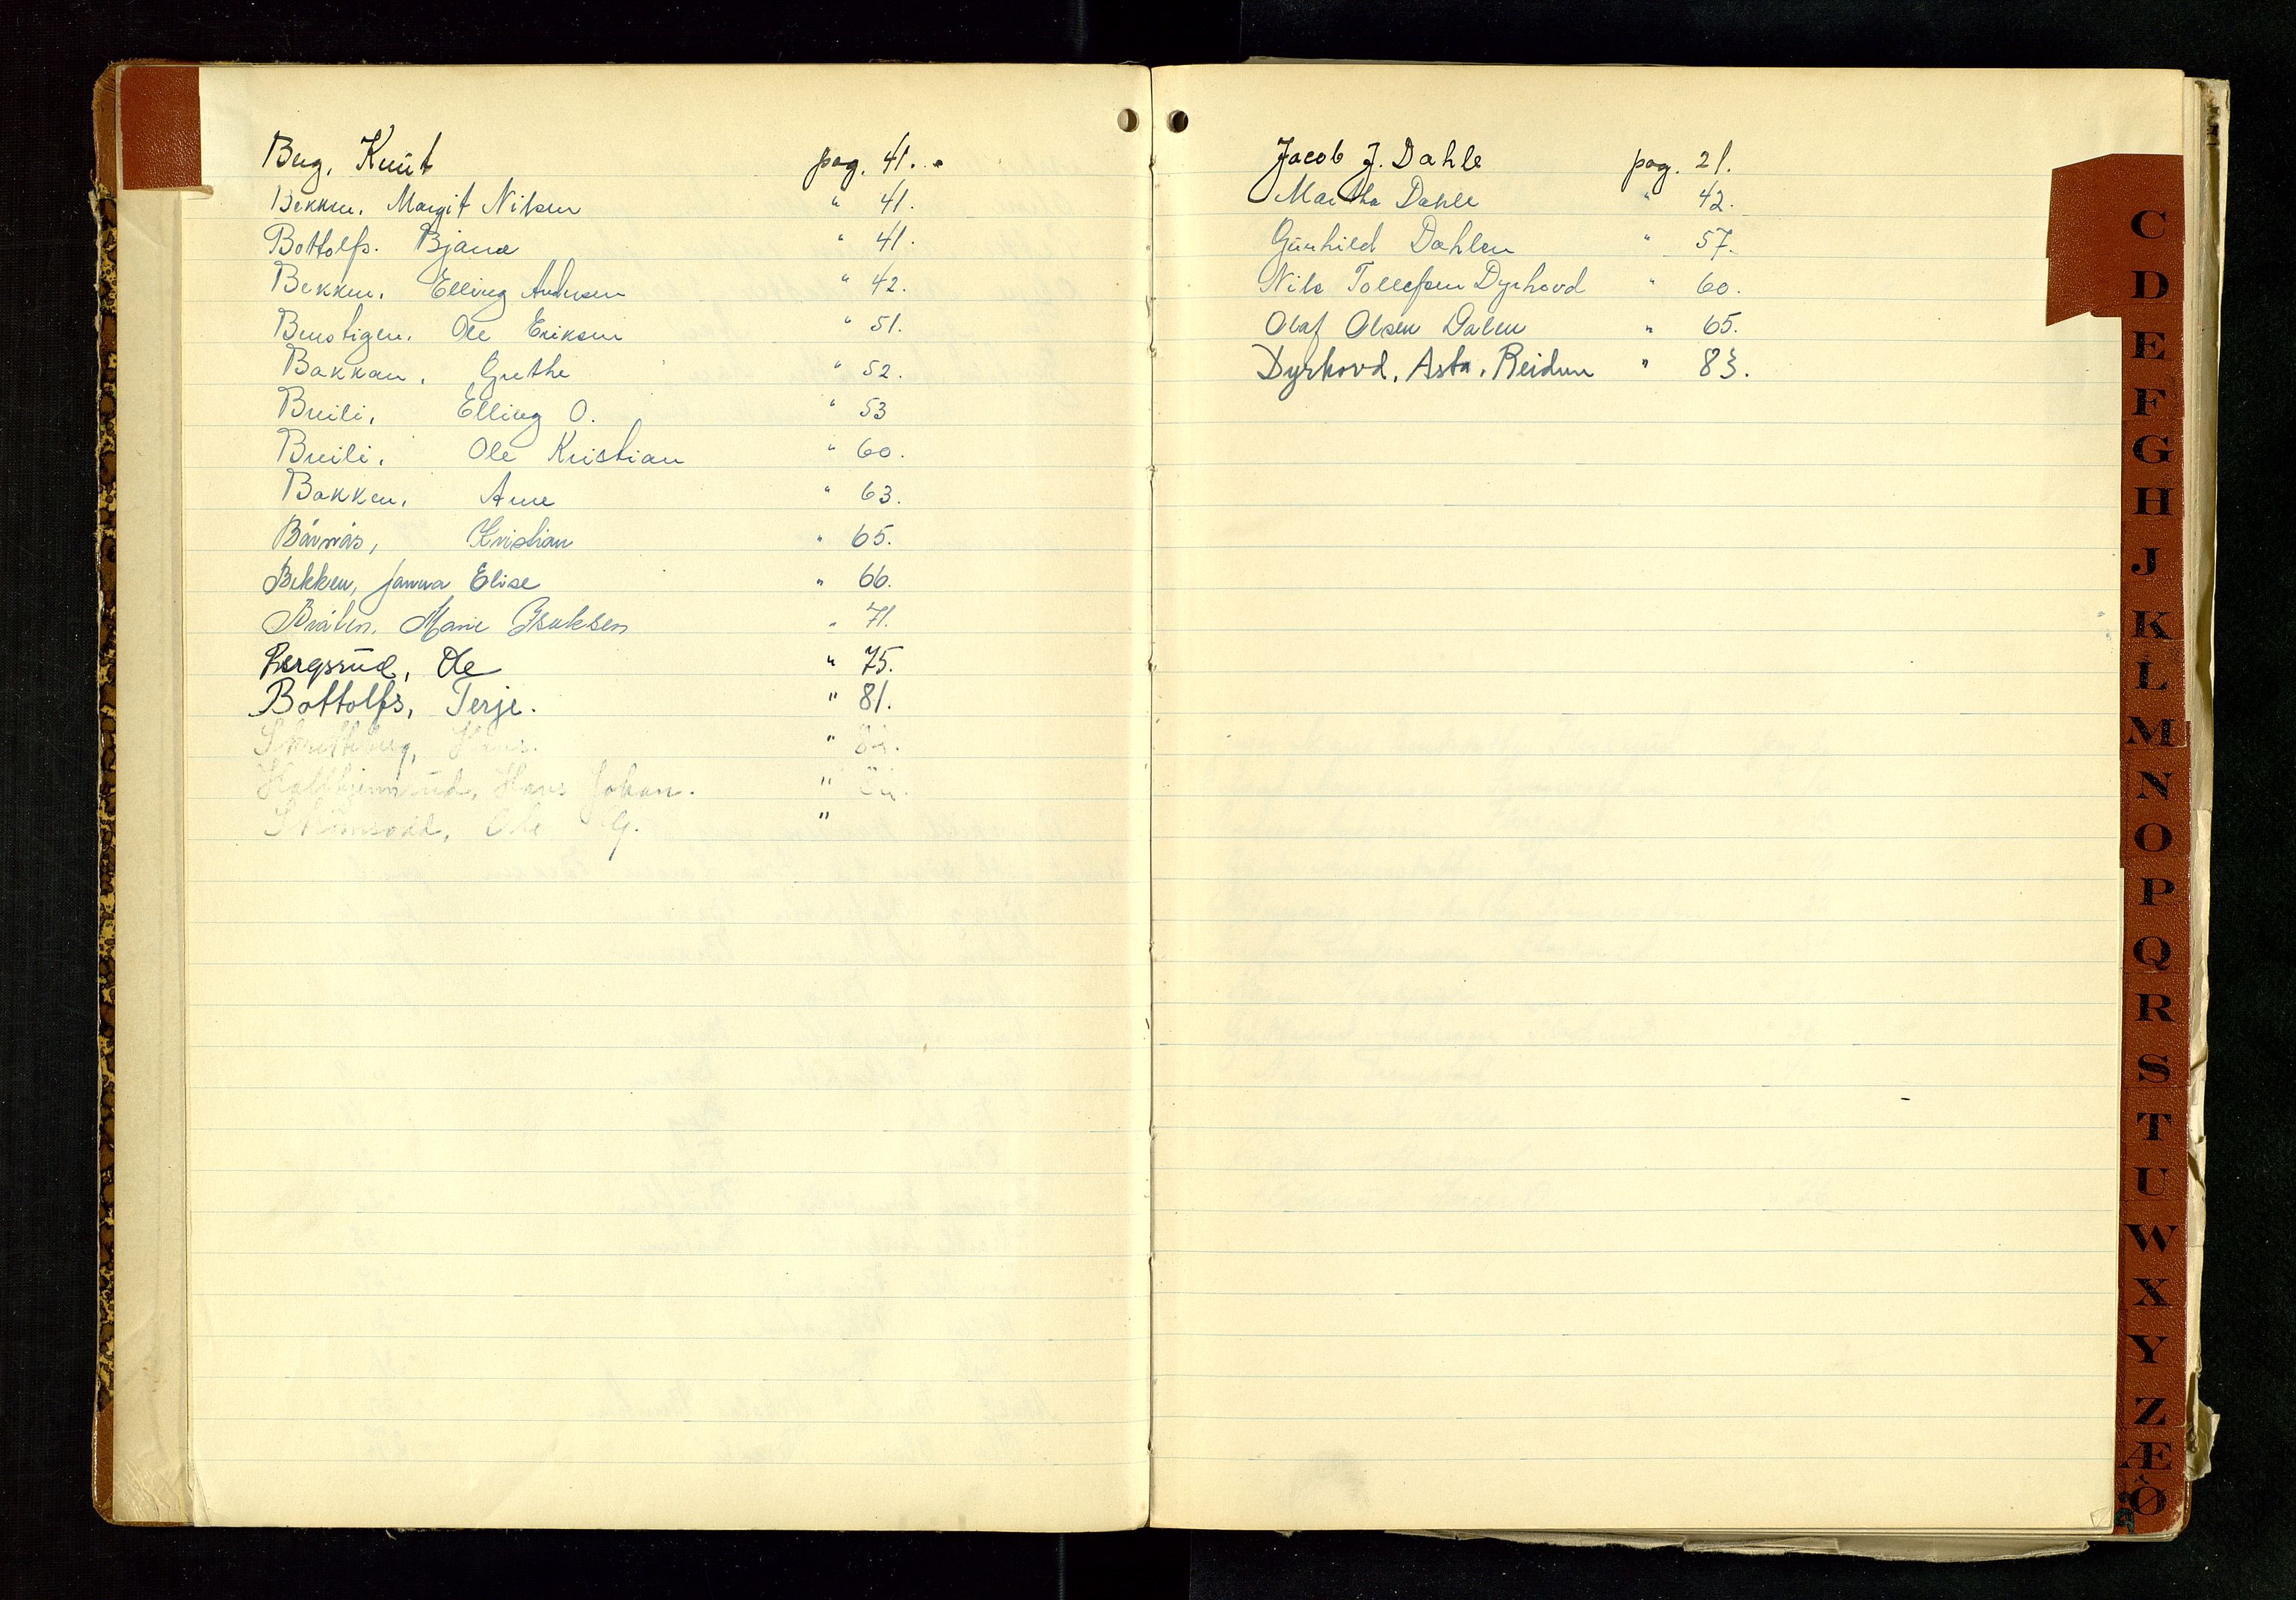 Berg, Knut pag. 41.
Bekken, Margit Nilsen " 41.
Bottolfs. Bjarne " 41.
Bekken, Elling Andersen " 42.
Benstigen, Ole Eriksen " 51.
Bakkan, Grethe " 52.
Breili, Elling O. " 53
Breili, Ole Kristian " 60.
Bakken, Arne " 63.
Kristian " 65.
Bekken, Janna Elise " 66.
Bråten, Marie Isaksen " 71.
Bergsrud, Ole " 75.
Bottolfs, Terje. " 81.
Hans. "
Hans Johan. "
Ole G. "
Jacob J. Dahle pag. 21.
Martha Dahle " 42.
Gunhild Dahlen " 57.
Nils Tollefsen Dyrhovd " 60.
Olaf Olsen Dalen " 65.
Dyrhovd, Asta, Reidun " 83.
C
D
E
F
G
H
J
K
L
M
N
O
P
Q
R
S
T
U
W
X
Y
Z
Æ
Ø